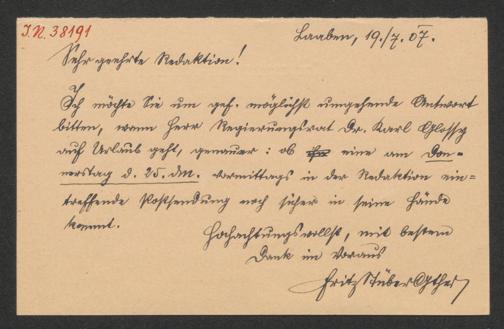 I.N. 38191
Laaben, 19./7. 07.
Sehr geehrte Redaktion!
Ich möchte Sie um gef. möglichst umgehende Antwort
bitten, wann Herr Regierungsrat Dr. Karl Glossy
auf Urlaub geht, genauer: ob eine am Don-
nerstag d. 25. ds. vormittags in der Redaktion ein-
treffende Postsendung noch sicher in seine Hände
kommt.
Hochachtungsvollst, mit bestem
Dank im Voraus
Fritz Stüber-Gunther